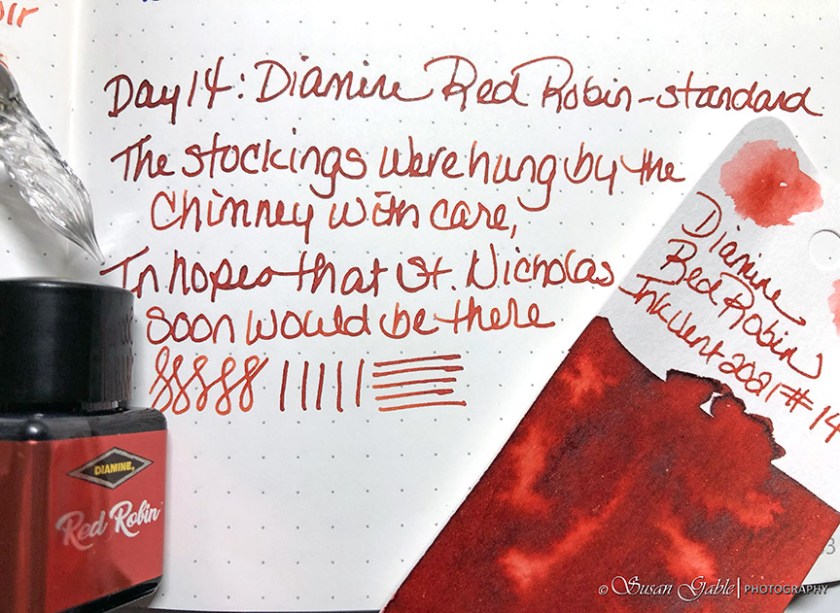 Day 14: Diamine Red Robin - standard
The stockings were hung by the
Chimney with care,
In hopes that St. Nicholas
Soon would be there
Diamine
Red Robin
InkVent 2021 # 14
DIAMINE
Red Robin
© Susan Gable | PHOTOGRAPHY